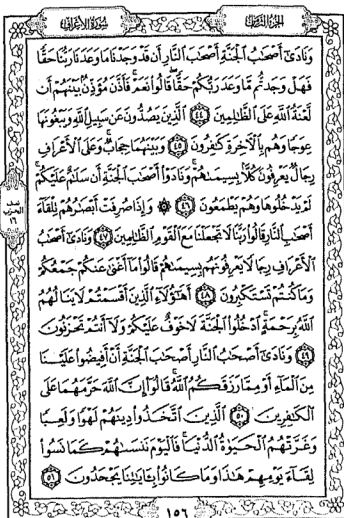 الجزء الثامن
سورة الأعراف
وَنَادَىٰٓ أَصْحَٰبُ ٱلْجَنَّةِ أَصْحَٰبَ ٱلنَّارِ أَن قَدْ وَجَدْنَا مَا وَعَدَنَا رَبُّنَا حَقًّا
فَهَلْ وَجَدتُّم مَّا وَعَدَ رَبُّكُمْ حَقًّا ۖ قَالُوا۟ نَعَمْ ۚ فَأَذَّنَ مُؤَذِّنٌۢ بَيْنَهُمْ أَن
لَّعْنَةُ ٱللَّهِ عَلَى ٱلظَّٰلِمِينَ ٤٤ ٱلَّذِينَ يَصُدُّونَ عَن سَبِيلِ ٱللَّهِ وَيَبْغُونَهَا
عِوَجًا وَهُم بِٱلْءَاخِرَةِ كَٰفِرُونَ ٤٥ وَبَيْنَهُمَا حِجَابٌ ۚ وَعَلَى ٱلْأَعْرَافِ
رِجَالٌ يَعْرِفُونَ كُلًّۢا بِسِيمَىٰهُمْ ۚ وَنَادَوْا۟ أَصْحَٰبَ ٱلْجَنَّةِ أَن سَلَٰمٌ عَلَيْكُمْ ۚ
لَمْ يَدْخُلُوهَا وَهُمْ يَطْمَعُونَ ٤٦ ۞ وَإِذَا صُرِفَتْ أَبْصَٰرُهُمْ تِلْقَآءَ
أَصْحَٰبِ ٱلنَّارِ قَالُوا۟ رَبَّنَا لَا تَجْعَلْنَا مَعَ ٱلْقَوْمِ ٱلظَّٰلِمِينَ ٤٧ وَنَادَىٰٓ أَصْحَٰبُ
ٱلْأَعْرَافِ رِجَالًا يَعْرِفُونَهُم بِسِيمَىٰهُمْ قَالُوا۟ مَآ أَغْنَىٰ عَنكُمْ جَمْعُكُمْ
وَمَا كُنتُمْ تَسْتَكْبِرُونَ ٤٨ أَهَٰٓؤُلَآءِ ٱلَّذِينَ أَقْسَمْتُمْ لَا يَنَالُهُمُ
ٱللَّهُ بِرَحْمَةٍ ۚ ٱدْخُلُوا۟ ٱلْجَنَّةَ لَا خَوْفٌ عَلَيْكُمْ وَلَآ أَنتُمْ تَحْزَنُونَ
٤٩ وَنَادَىٰٓ أَصْحَٰبُ ٱلنَّارِ أَصْحَٰبَ ٱلْجَنَّةِ أَنْ أَفِيضُوا۟ عَلَيْنَا
مِنَ ٱلْمَآءِ أَوْ مِمَّا رَزَقَكُمُ ٱللَّهُ ۚ قَالُوٓا۟ إِنَّ ٱللَّهَ حَرَّمَهُمَا عَلَى
ٱلْكَٰفِرِينَ ٥٠ ٱلَّذِينَ ٱتَّخَذُوا۟ دِينَهُمْ لَهْوًا وَلَعِبًا
وَغَرَّتْهُمُ ٱلْحَيَوٰةُ ٱلدُّنْيَا ۚ فَٱلْيَوْمَ نَنسَىٰهُمْ كَمَا نَسُوا۟
لِقَآءَ يَوْمِهِمْ هَٰذَا وَمَا كَانُوا۟ بِـَٔايَٰتِنَا يَجْحَدُونَ ٥١
الحزب
١٦
١٥٦